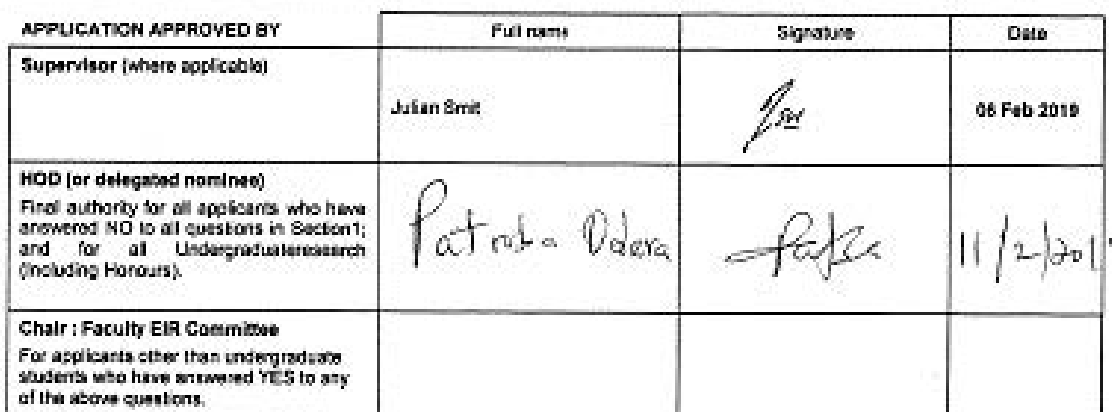 APPLICATION APPROVED BY
Full name
Signature
Date
Supervisor (where applicable)
Julian Smit
06 Feb 2019
HOD (or delegated nominee)
Final authority for all applicants who have
answered NO to all questions in Section1;
and for all Undergraduateresearch
(Including Honours).
11/2/201
Chair : Faculty EIR Committee
For applicants other than undergraduate
students who have answered YES to any
of the above questions.